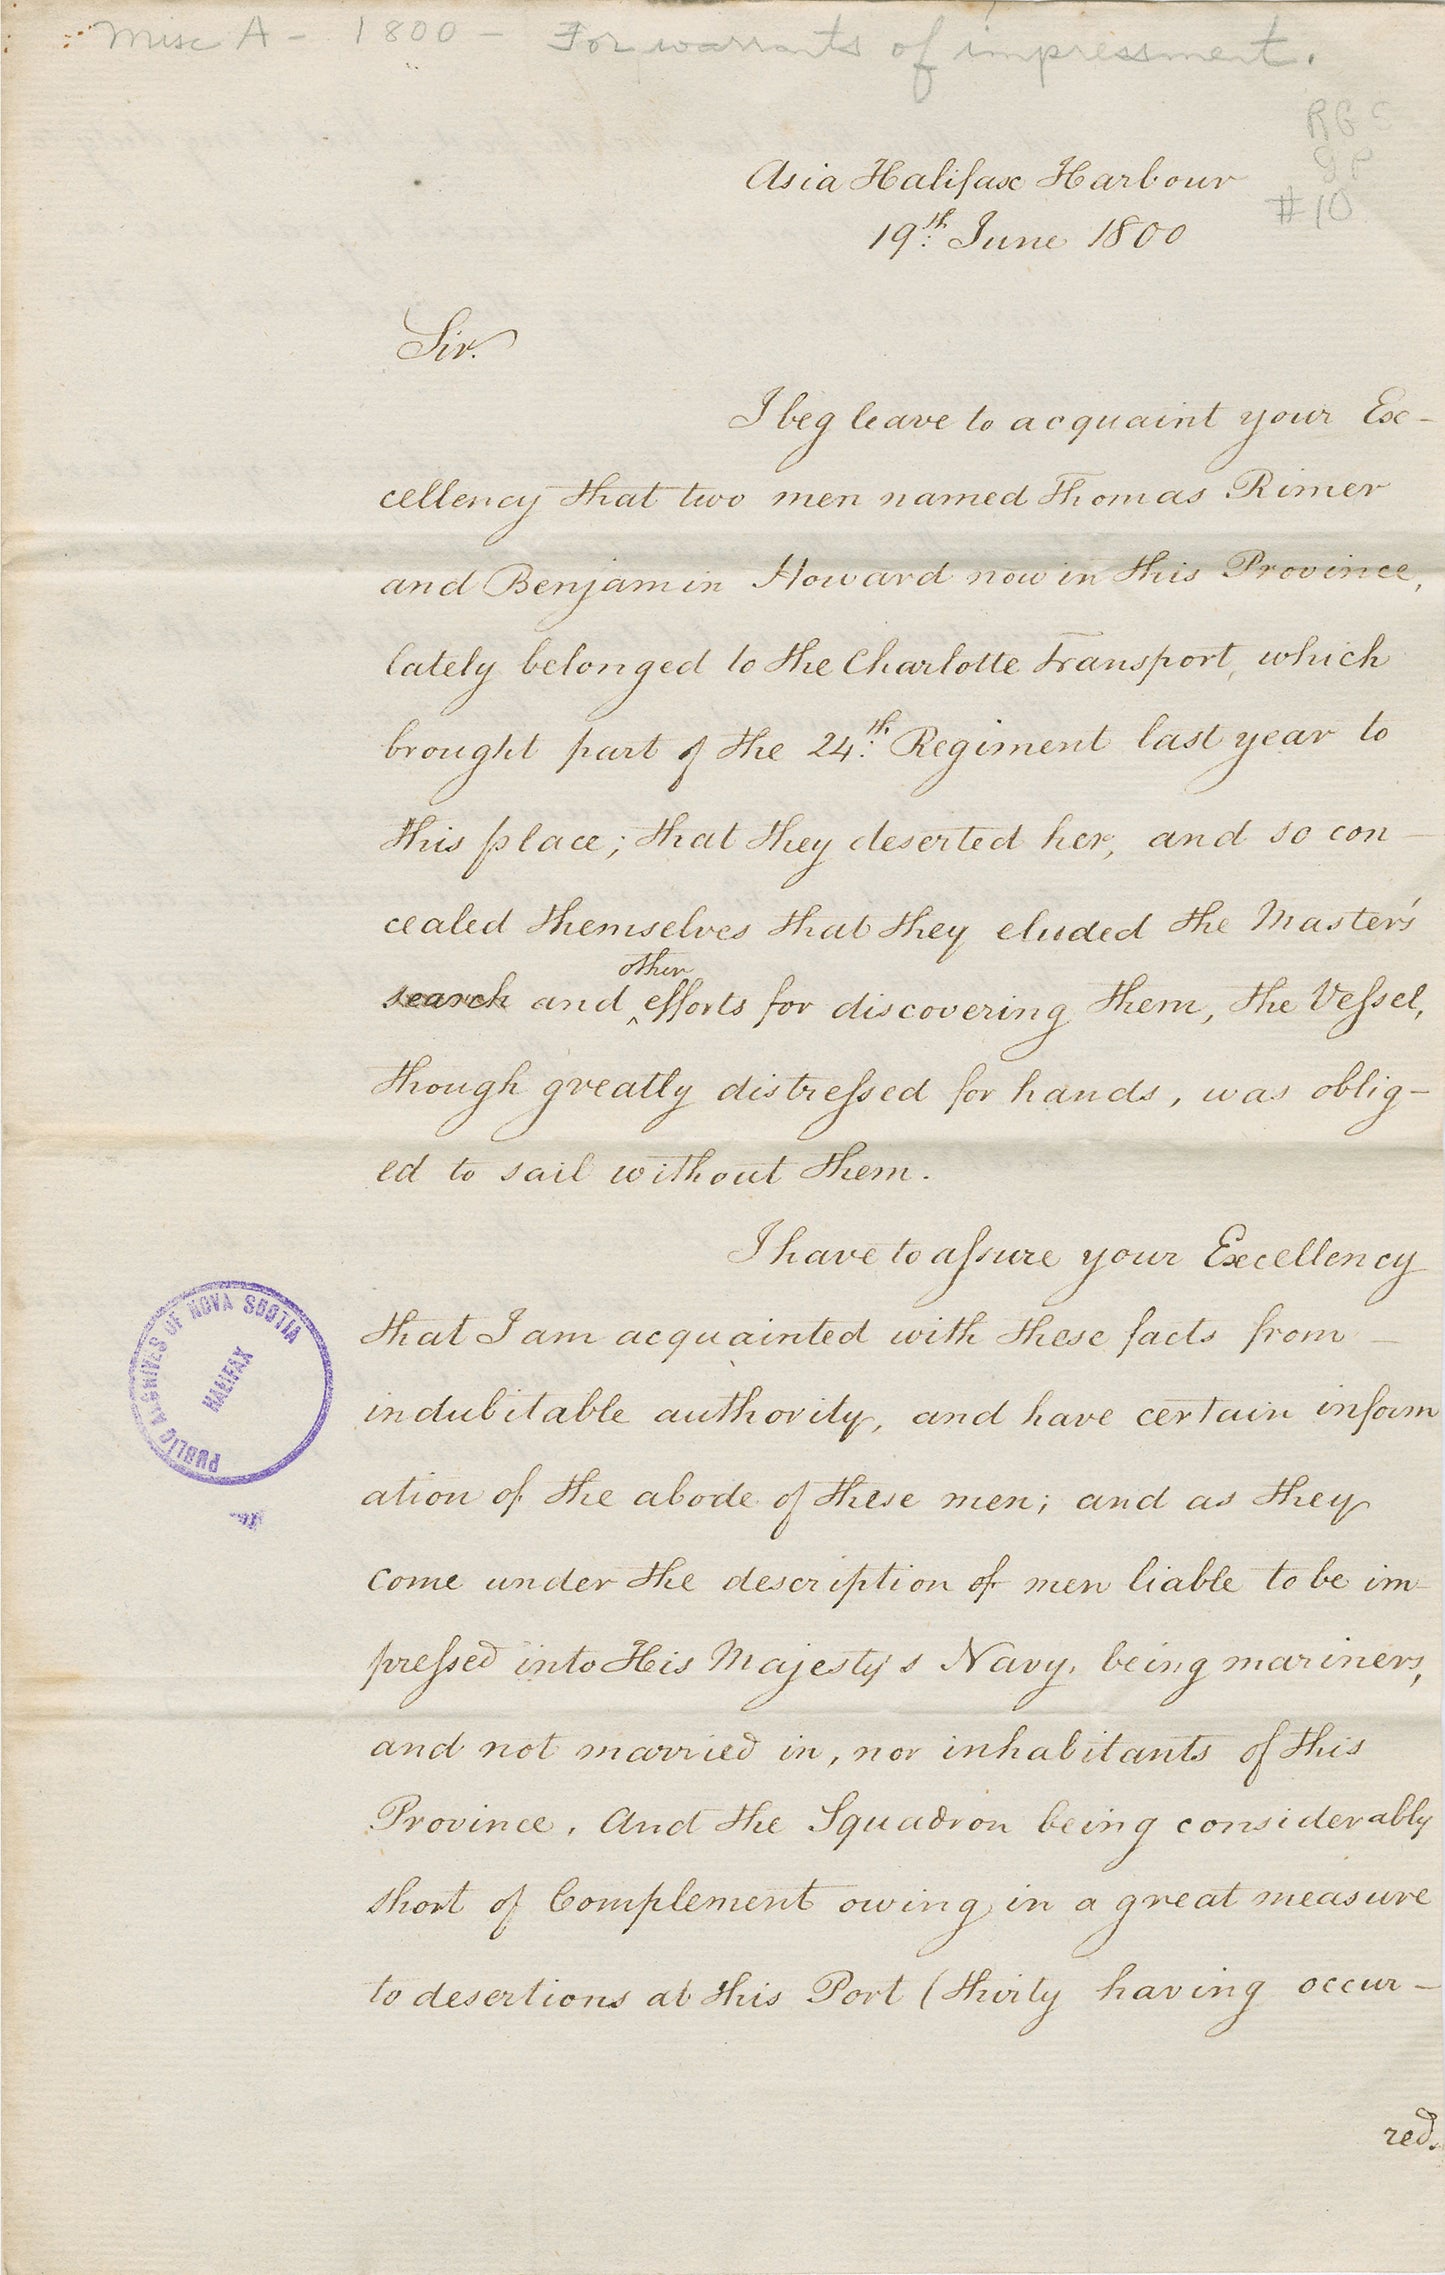 Misc A - 1800 - For warrants of impressment.
RG 5
GP
#10
Asia Halifax Harbour
19th. June 1800
Sir.
I beg leave to acquaint your Ex-
cellency that two men named Thomas Rimer
and Benjamin Howard now in this Province,
lately belonged to the Charlotte Transport, which
brought part of the 24th. Regiment last year to
this place; that they deserted her, and so con-
cealed themselves that they eluded the Master's
search and ^other efforts for discovering them, the Veſsel,
though greatly distreſsed for hands, was oblig-
ed to sail without them.
I have to aſsure your Excellency
that I am acquainted with these facts from -
indubitable authority, and have certain inform
ation of the abode of these men; and as they
come under the description of men liable to be im-
preſsed into His Majesty's Navy, being mariners,
and not married in, nor inhabitants of this
Province. And the Squadron being considerably
short of Complement owing in a great measure
to desertions at this Port (thirty having occur-
red.
PUBLIC ARCHIVES OF NOVA SCOTIA
HALIFAX